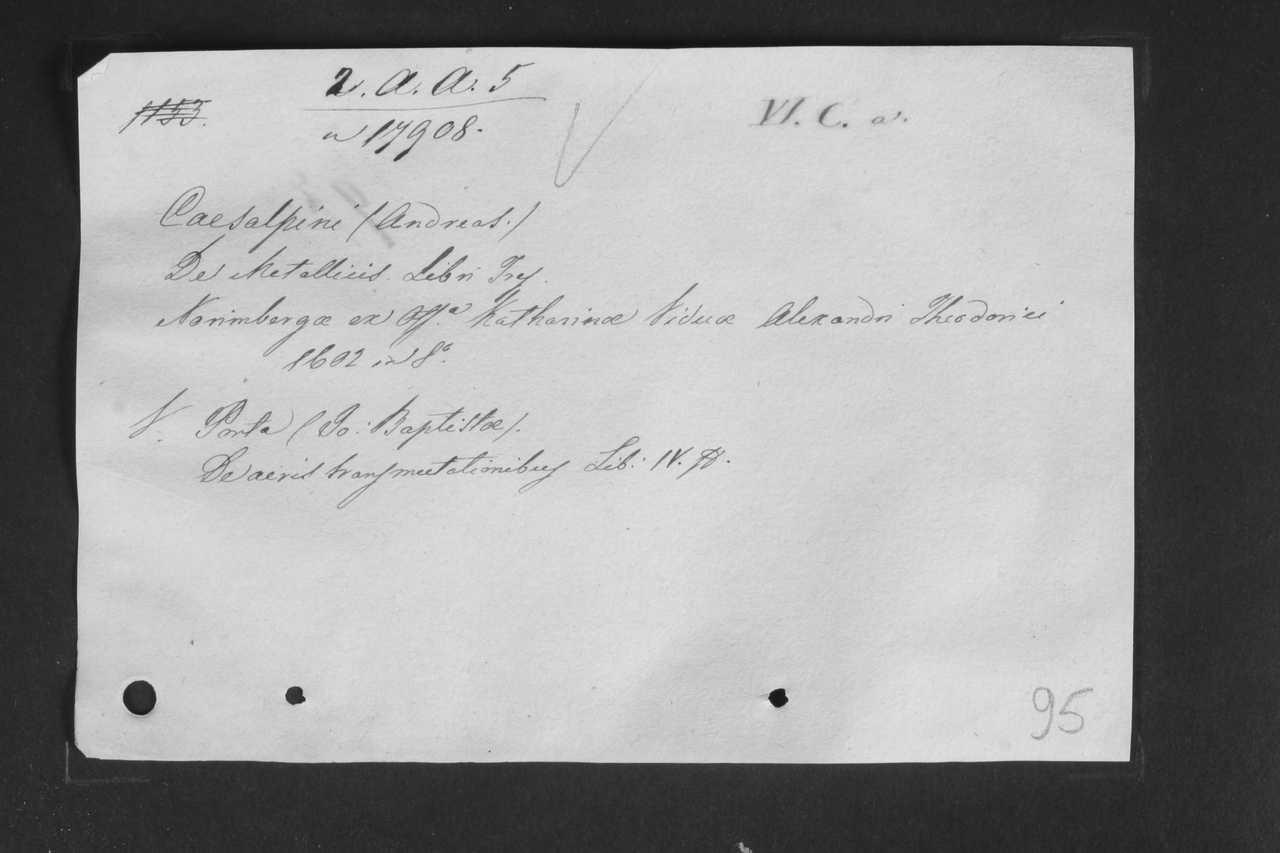 1155.
2. a. a. 5
n 17908.
VI. C. a.
Caesalpini (Andreas.)
De Metallicis. Libri Tres.
Norimbergæ ex Off.ª Katharinæ Viduæ Alexandri Theodorici
1602 in 8°.
V. Porta (Jo: Baptistæ).
De aeris transmutationibus Lib: IV.
95